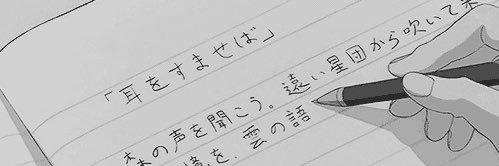 「耳をすませば」
森の声を聞こう。遠い星団から吹いて
を、雲の語